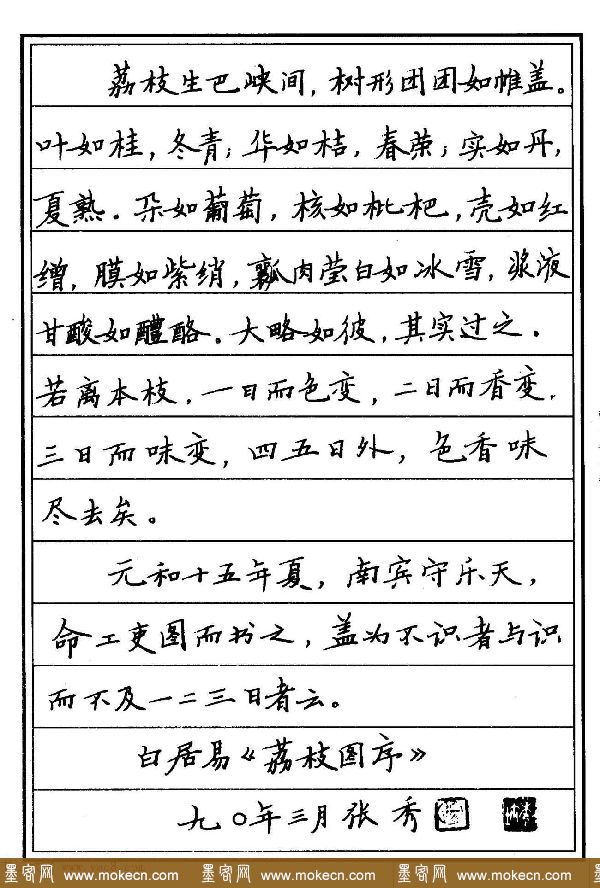 荔枝生巴峡间，树形团团如帷盖。
叶如桂，冬青；华如桔，春荣；实如丹，
夏熟。朵如葡萄，核如枇杷，壳如红
缯，膜如紫绡，瓤肉莹白如冰雪，浆液
甘酸如醴酪。大略如彼，其实过之。
若离本枝，一日而色变，二日而香变，
三日而味变，四五日外，色香味
尽去矣。
元和十五年夏，南宾守乐天，
命工吏图而书之，盖为不识者与识
而不及一二三日者云。
白居易《荔枝图序》
九〇年三月张秀
墨客网 www.mokecn.com 墨客网 www.mokecn.com 墨客网 www.mokecn.com